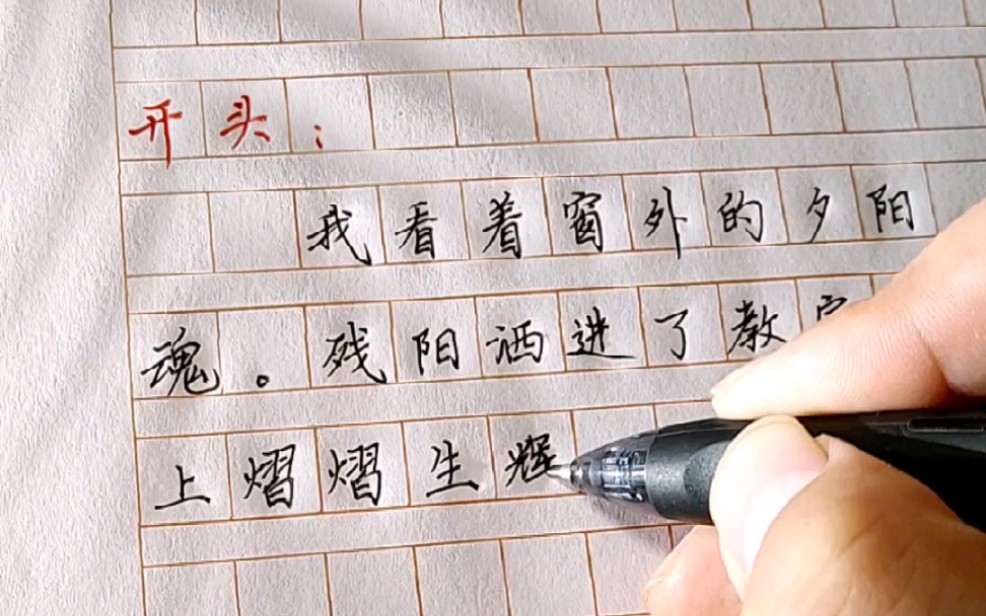 开头：
我看着窗外的夕阳
魂。残阳洒进了教
上熠熠生辉